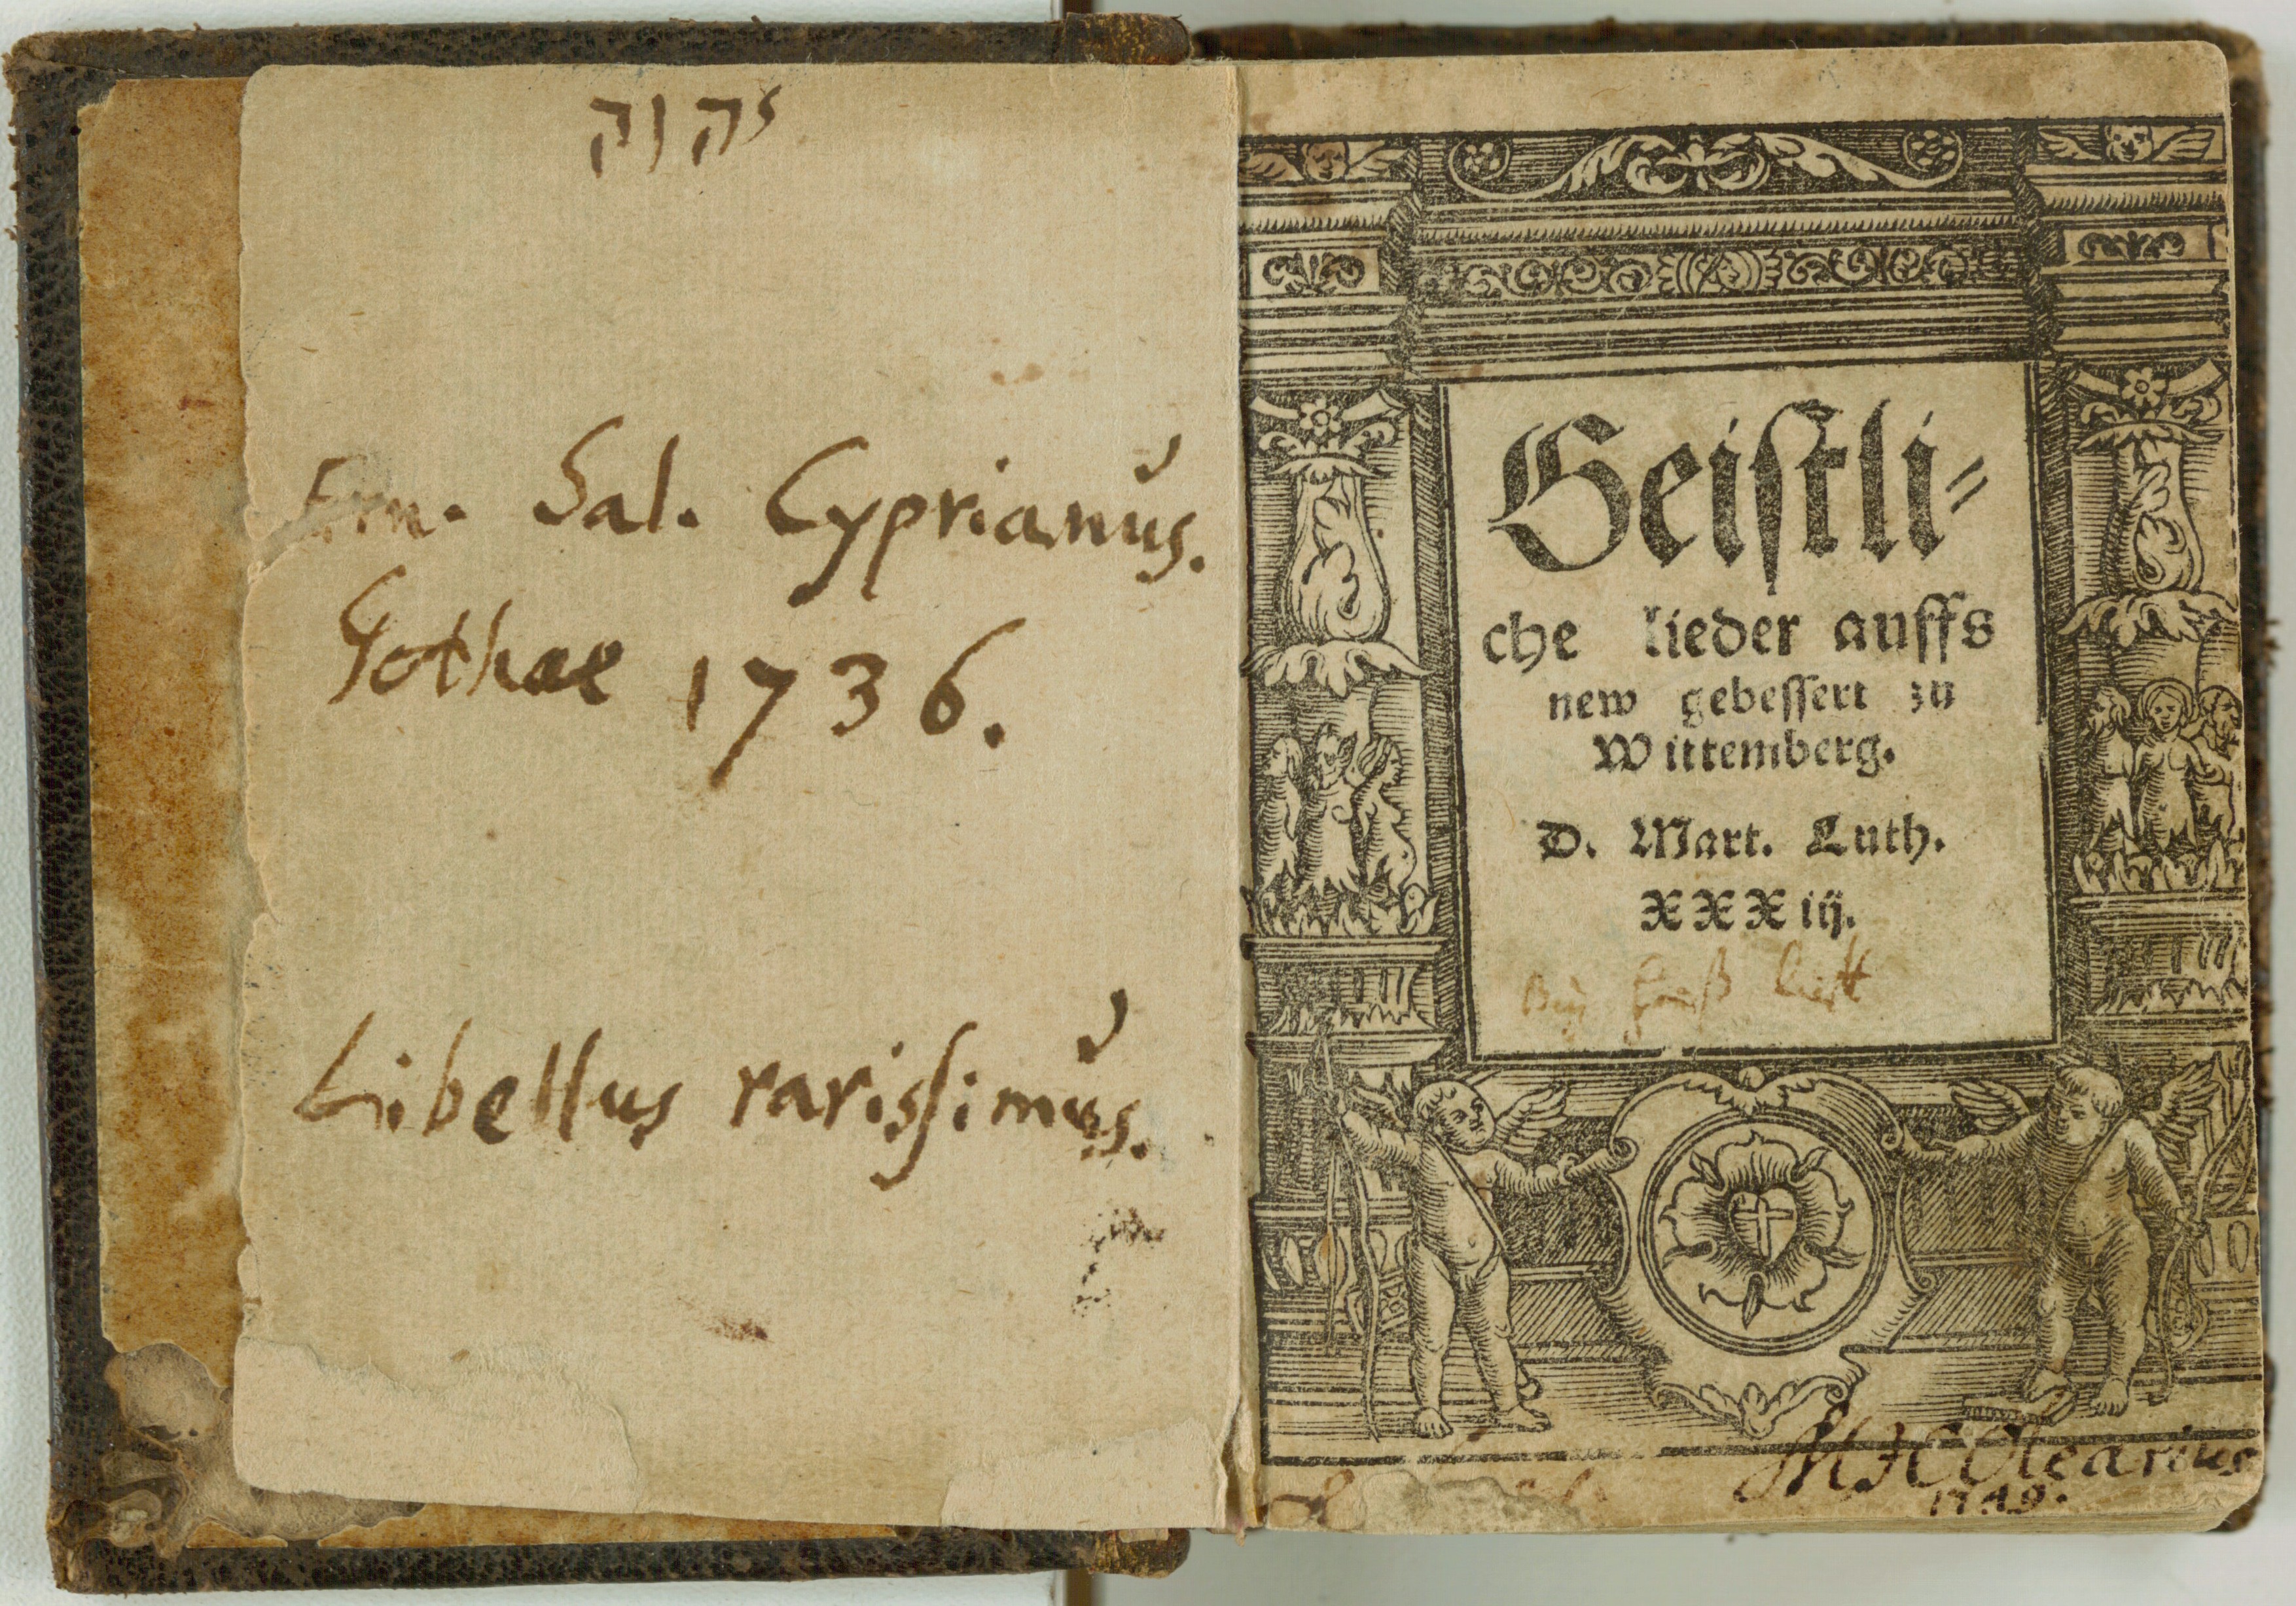 יהוה
Ern. Sal. Cyprianus.
Gothae 1736.
Libellus rarissimus.
Geistli⸗
che lieder auffs
new gebessert zu
Wittemberg.
D. Mart. Luth.
XXXiij.
M H Olearius